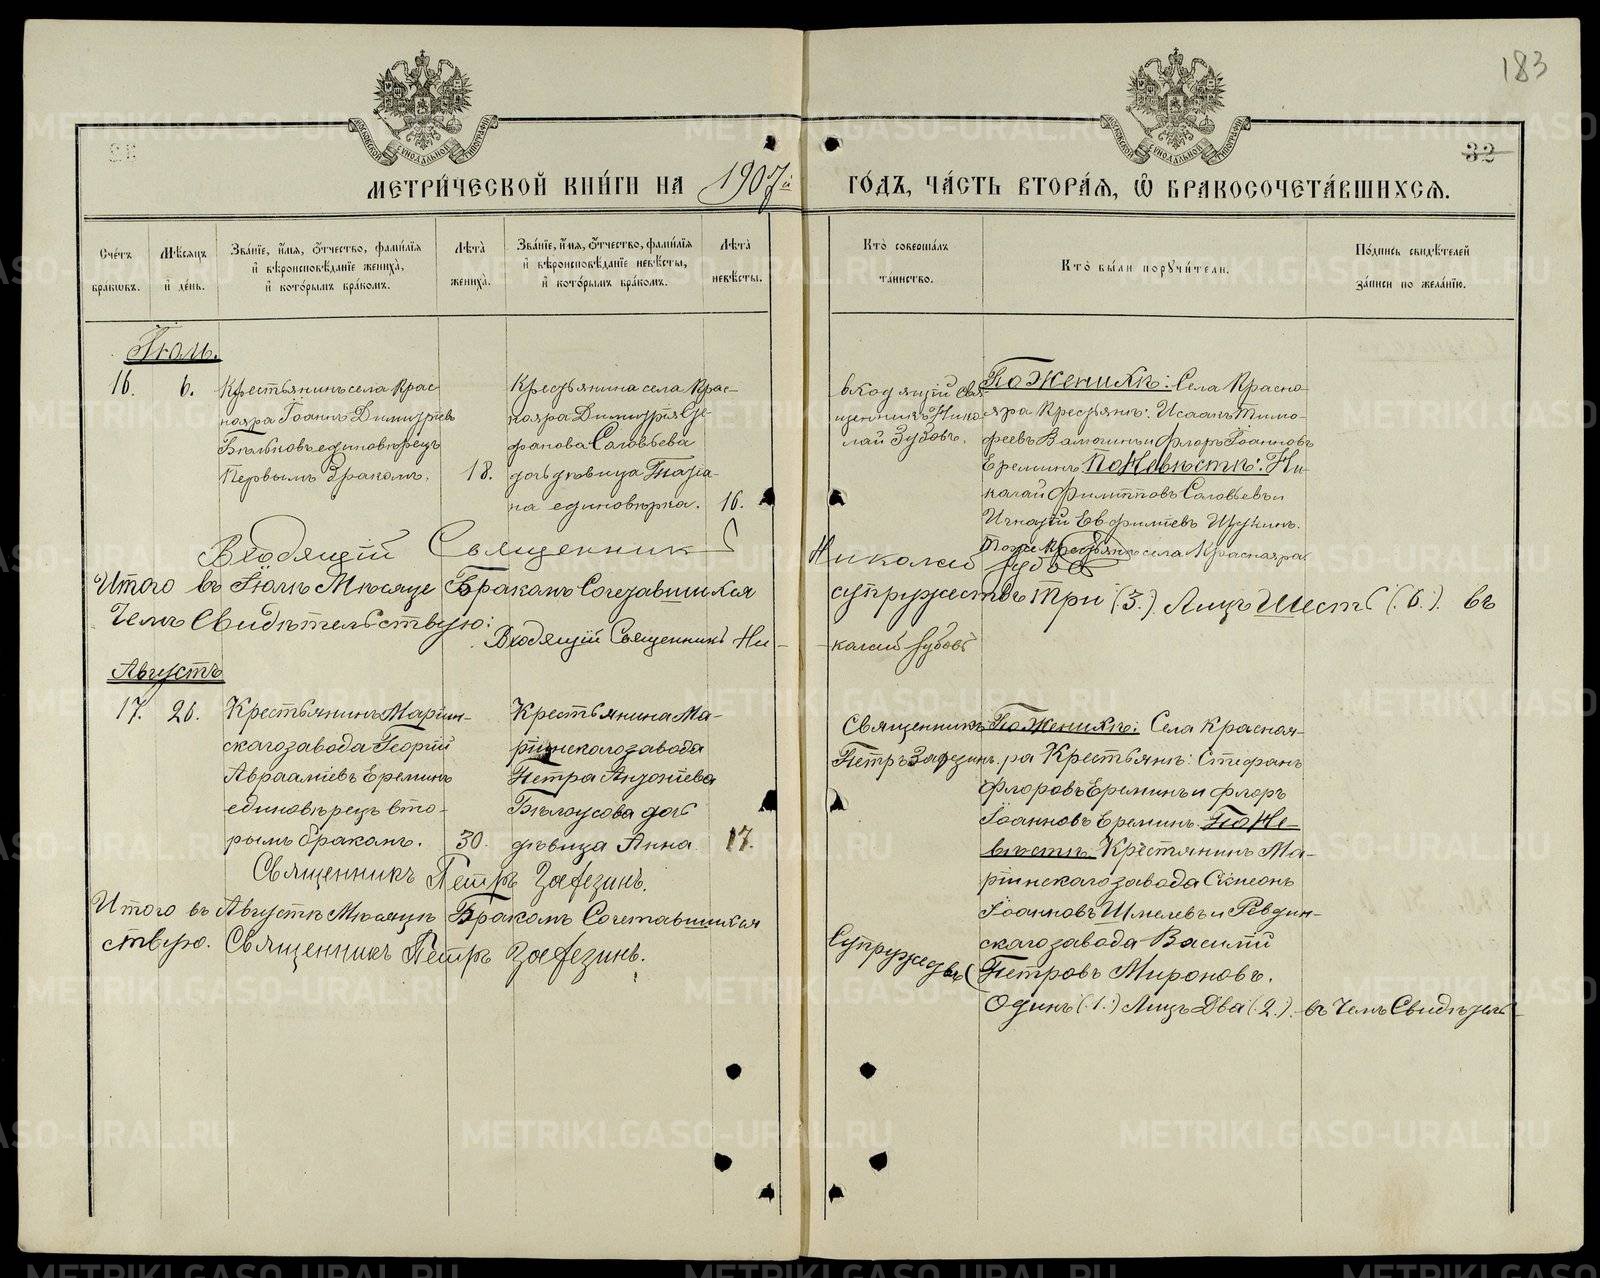 183
32
МЕТРИ́ЧЕСКОЙ КНИ́ГИ НА 1907й ГО́ДЪ, ЧА́СТЬ ВТОРА́Я, Ѽ БРАКОСОЧЕТА́ВШИХСЯ.
Сче́тъ браковъ.
Мѣ́сяцъ и҆ де́нь.
Зва́нїе, и҆́мя, ѻ҆́тчество, фами́лїя
и҆ вѣроисповѣ́данїе жениха̀,
и҆ кото́рымъ бра́комъ.
Лѣта̀ жениха̀.
Зва́нїе, и҆́мя, ѻ҆́тчество, фами́лїя
и҆ вѣроисповѣ́данїе невѣ́сты,
и҆ кото́рымъ бра́комъ.
Лѣта̀ невѣ́сты.
Кто̀ соверша́лъ
та́инство.
Кто̀ бы́ли поручи́тели.
По́дпись свидѣ́телей
за́писи по жела́нїю.
Іюль.
16. 6.
Крестьянинъ села Крас
нояра Іоаннъ Димитріевъ
Бѣлковъ единовѣрецъ
Первымъ бракомъ.
18.
Крестьянина села Крас-
нояра Димитрія Сте-
фанова Соловьева
дочь дѣвица Татіа-
на единовѣрка.
16.
входящій Свя
щенникъ Нико
лай Зубовъ.
По Женихѣ: Села Красно-
яра Крестьяне: Исаакъ Тимо-
феевъ Ватогинъ и Флоръ Іоанновъ
Ереминъ По Невѣстѣ: Ни-
колай Филипповъ Соловьевъ и
Игнатій Евфиміевъ Щукинъ.
тоже Крестьяне села Краснояра
Входящій Священникъ Николай Зубовъ
Итого въ Іюлѣ Мѣсяце Бракомъ Сочетавшихся супружествъ три (3.) Лицъ Шесть (6.). въ
Чемъ Свидѣтельствую:
Входящій Священникъ Ни-колай Зубовъ
Августъ
17. 26.
Крестьянинъ Маріин-
скаго завода Георгій
Авраамiевъ Ереминъ
единовѣрецъ вто-
рымъ бракомъ.
30.
Крестьянина Ма-
ріинскаго завода
Петра Антоніева
Бѣлоусова дочь
дѣвица Анна
17.
Священникъ
Петръ Заfезинъ.
По Женихѣ: Села Красноя-
ра Крестьяне: Стефанъ
Флоровъ Ереминъ и Флоръ
Іоанновъ Ереминъ. По Не-
вѣстѣ Крестянинъ Ма-
ріинскаго завода Симеонъ
Іоанновъ Шмелевъ и Ревдин-
скаго завода Василій
Петровъ Мироновъ.
Священникъ Петръ Заfезинъ.
Итого въ Августѣ Мѣсяцѣ Бракомъ Сочетавшихся Супружествъ Одинъ (1.) Лицъ Два (2.). въ Чемъ Свидѣтель-
ствую. Священникъ Петръ Заfезинъ.
METRIKI.GASO-URAL.RU